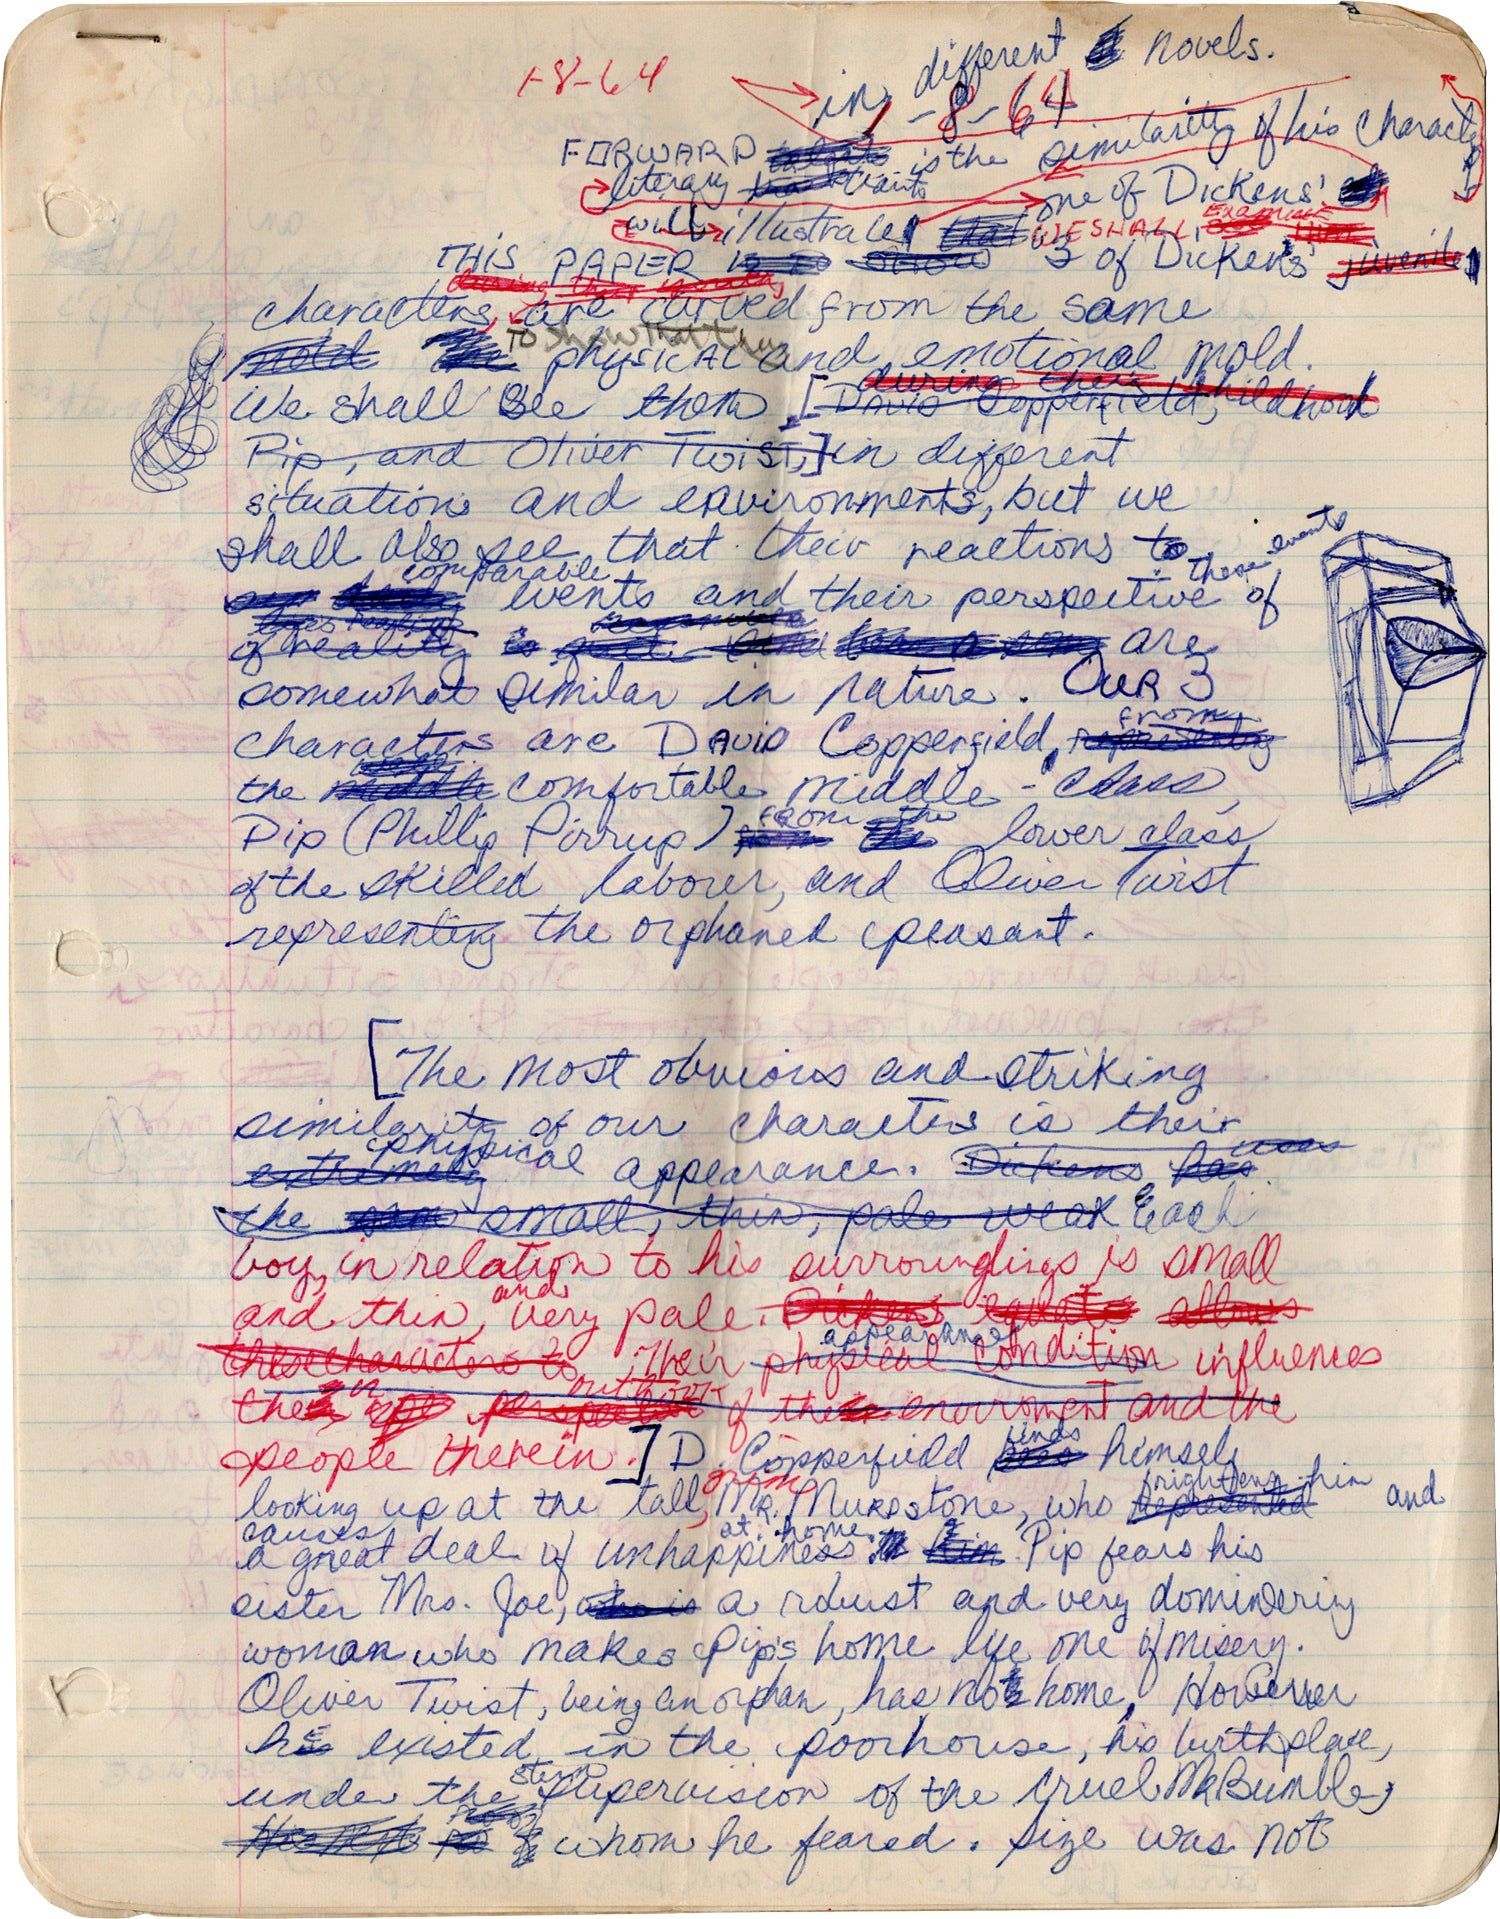 in different novels.
1-8-64
1-8-64
FORWARD is the similarity of his characters
literary traits one of Dickens'
will illustrate that WE SHALL Examine
THIS PAPER is to show 3 of Dickens' juvenile
during their youth,
characters, are carved from the same
To show that they
mold physical and emotional mold.
We shall see them [David Copperfield, during their childhood
Pip, and Oliver Twist,] in different
situations and environments, but we
shall also see that their reactions to
comparable events and their perspective of these events
of reality is are
somewhat similar in nature. OUR 3
characters are David Copperfield, representing from
the middle comfortable middle-class,
Pip (Phillip Pirrup) from the lower class
of the skilled laborer, and Oliver Twist
representing the orphaned peasant.
[The most obvious and striking
similarity of our characters is their
extremely physical appearance. Dickens has uses
the small, thin, pale weak Each
boy, in relation to his surroundings is small
and thin, and very pale. Dickens equate allows
these characters to Their physical appearance condition influences
their outlook of the enviroment and the
people therein.] D. Copperfield finds himself
looking up at the tall, grim Mr. Murdstone, who represented frightens him and
causes
a great deal of unhappiness at home. him Pip fears his
sister Mrs. Joe, who is a robust and very domindering
woman who makes Pip's home life one of misery.
Oliver Twist, being an orphan, has no home, However
he existed in the poorhouse, his birthplace,
under the stern supervision of the cruel Mr Bumble,
whom he feared. Size was not